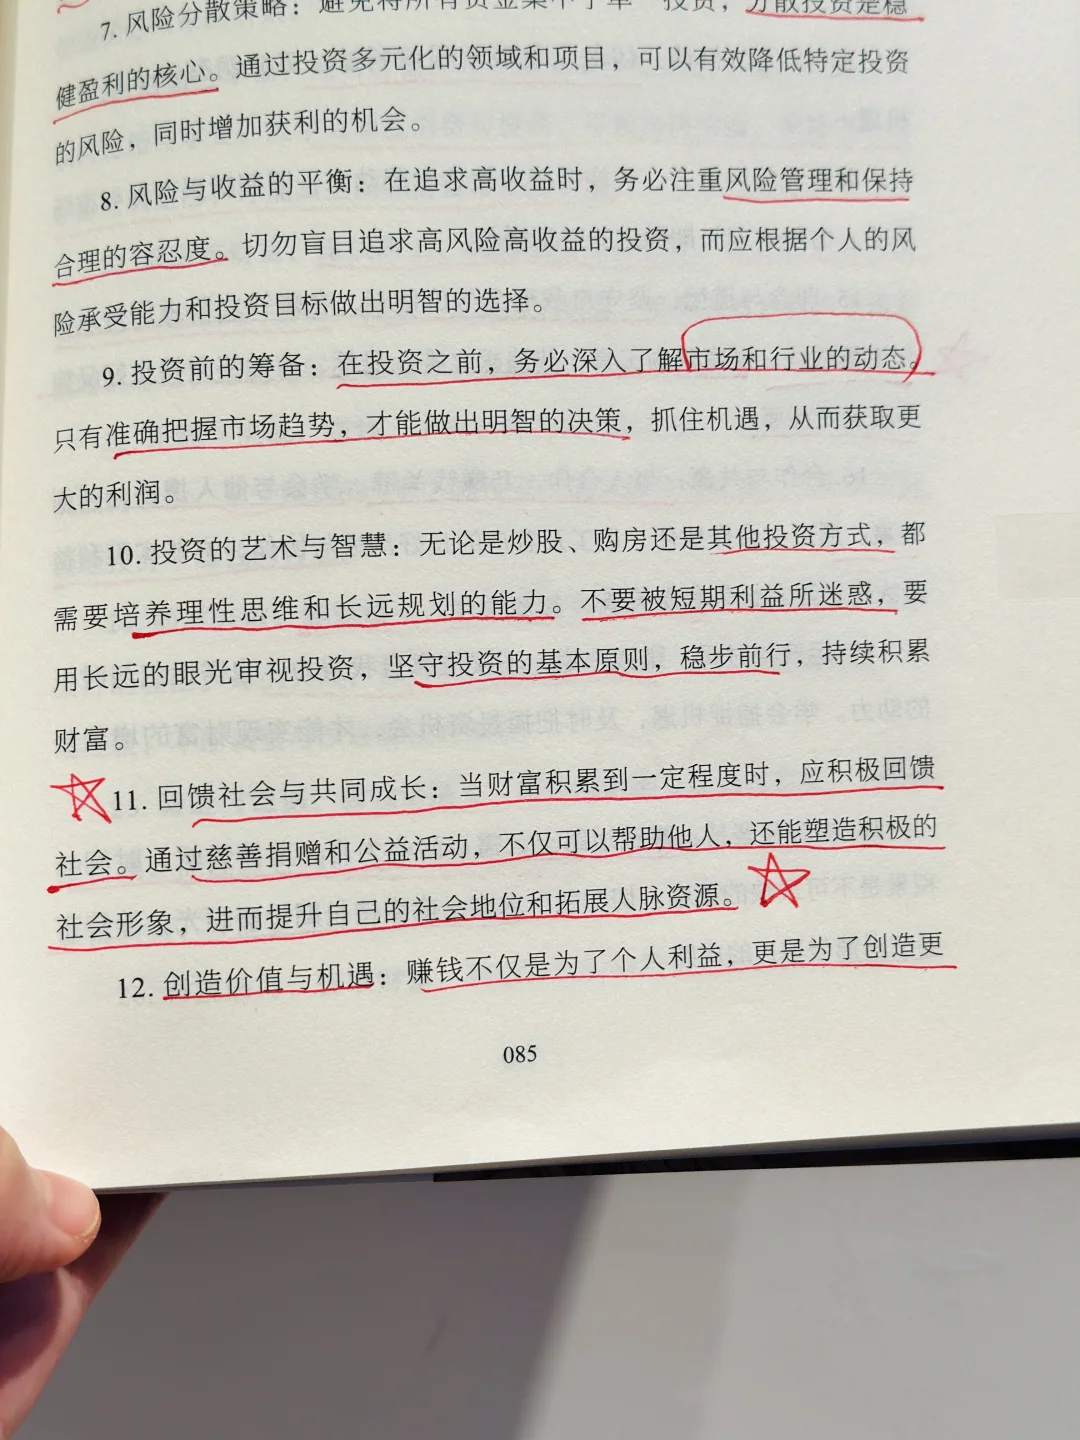 7. 风险分散策略：避免将所有资金集中于单一投资，分散投资是稳
健盈利的核心。通过投资多元化的领域和项目，可以有效降低特定投资
的风险，同时增加获利的机会。
8. 风险与收益的平衡：在追求高收益时，务必注重风险管理和保持
合理的容忍度。切勿盲目追求高风险高收益的投资，而应根据个人的风
险承受能力和投资目标做出明智的选择。
9. 投资前的筹备：在投资之前，务必深入了解市场和行业的动态。
只有准确把握市场趋势，才能做出明智的决策，抓住机遇，从而获取更
大的利润。
10. 投资的艺术与智慧：无论是炒股、购房还是其他投资方式，都
需要培养理性思维和长远规划的能力。不要被短期利益所迷惑，要
用长远的眼光审视投资，坚守投资的基本原则，稳步前行，持续积累
财富。
11. 回馈社会与共同成长：当财富积累到一定程度时，应积极回馈
社会。通过慈善捐赠和公益活动，不仅可以帮助他人，还能塑造积极的
社会形象，进而提升自己的社会地位和拓展人脉资源。
12. 创造价值与机遇：赚钱不仅是为了个人利益，更是为了创造更
085